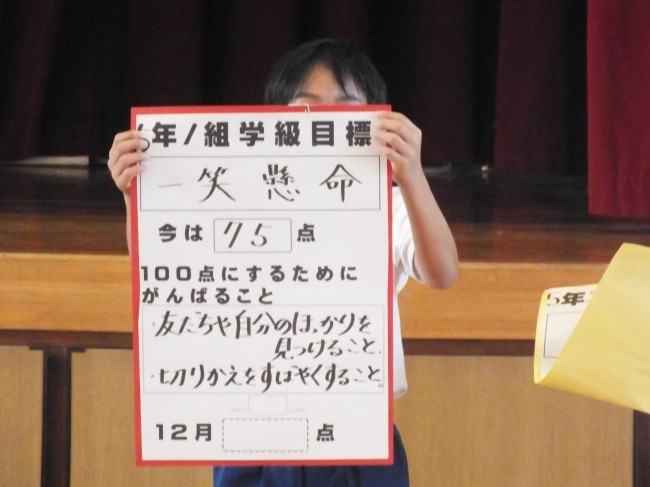 6年1組学級目標
一笑懸命
今は 75 点
100点にするために
がんばること
・友だちや自分のはっかりを
見つけること。
・切りかえをすばやくすること。
12月 点
5年